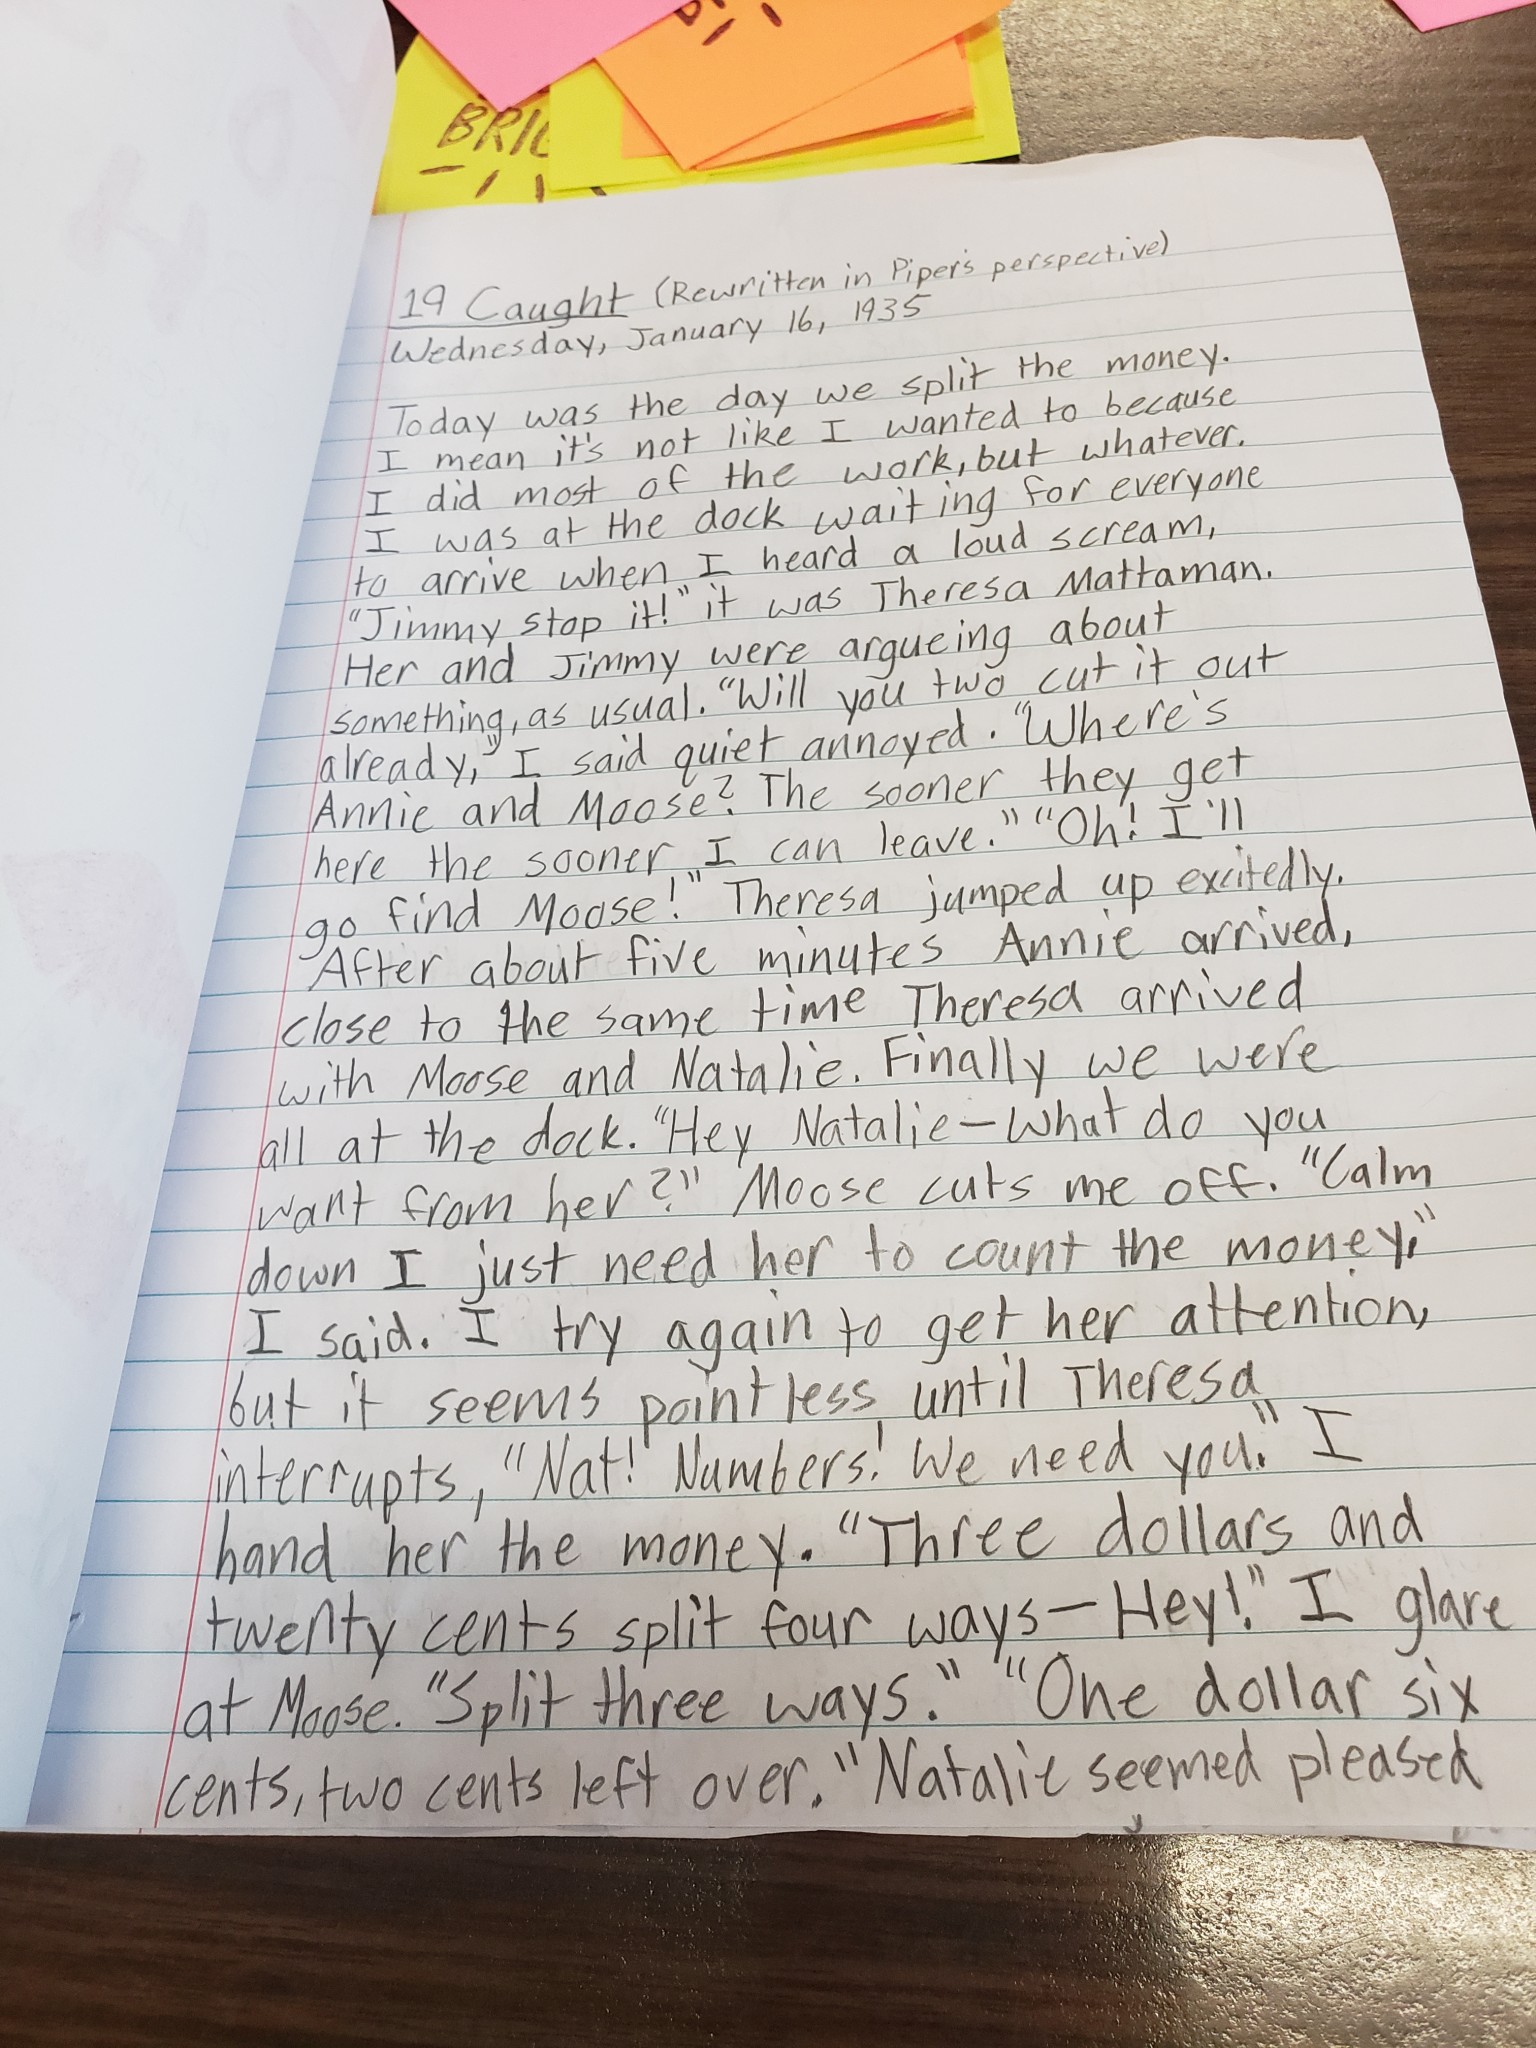 BRIG
19 Caught (Rewritten in Piper's perspective)
Wednesday, January 16, 1935
Today was the day we split the money.
I mean it's not like I wanted to because
I did most of the work, but whatever.
I was at the dock waiting for everyone
to arrive when I heard a loud scream,
"Jimmy stop it!" it was Theresa Mattaman.
Her and Jimmy were argueing about
something, as usual. "Will you two cut it out
already," I said quiet annoyed. "Where's
Annie and Moose? The sooner they get
here the sooner I can leave." "Oh! I'll
go find Moose!" Theresa jumped up excitedly.
After about five minutes Annie arrived,
close to the same time Theresa arrived
with Moose and Natalie. Finally we were
all at the dock. "Hey Natalie—What do you
want from her?" Moose cuts me off. "Calm
down I just need her to count the money,"
I said. I try again to get her attention,
but it seems pointless, until Theresa
interrupts, "Nat! Numbers! We need you." I
hand her the money. "Three dollars and
twenty cents split four ways—Hey!" I glare
at Moose. "Split three ways." "One dollar six
cents, two cents left over." Natalie seemed pleased